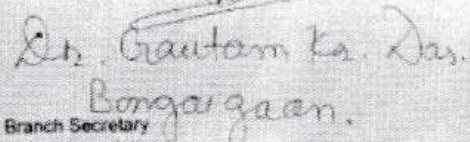 Dr. Gautam Kr. Das.
Bongaigaon.
Branch Secretary